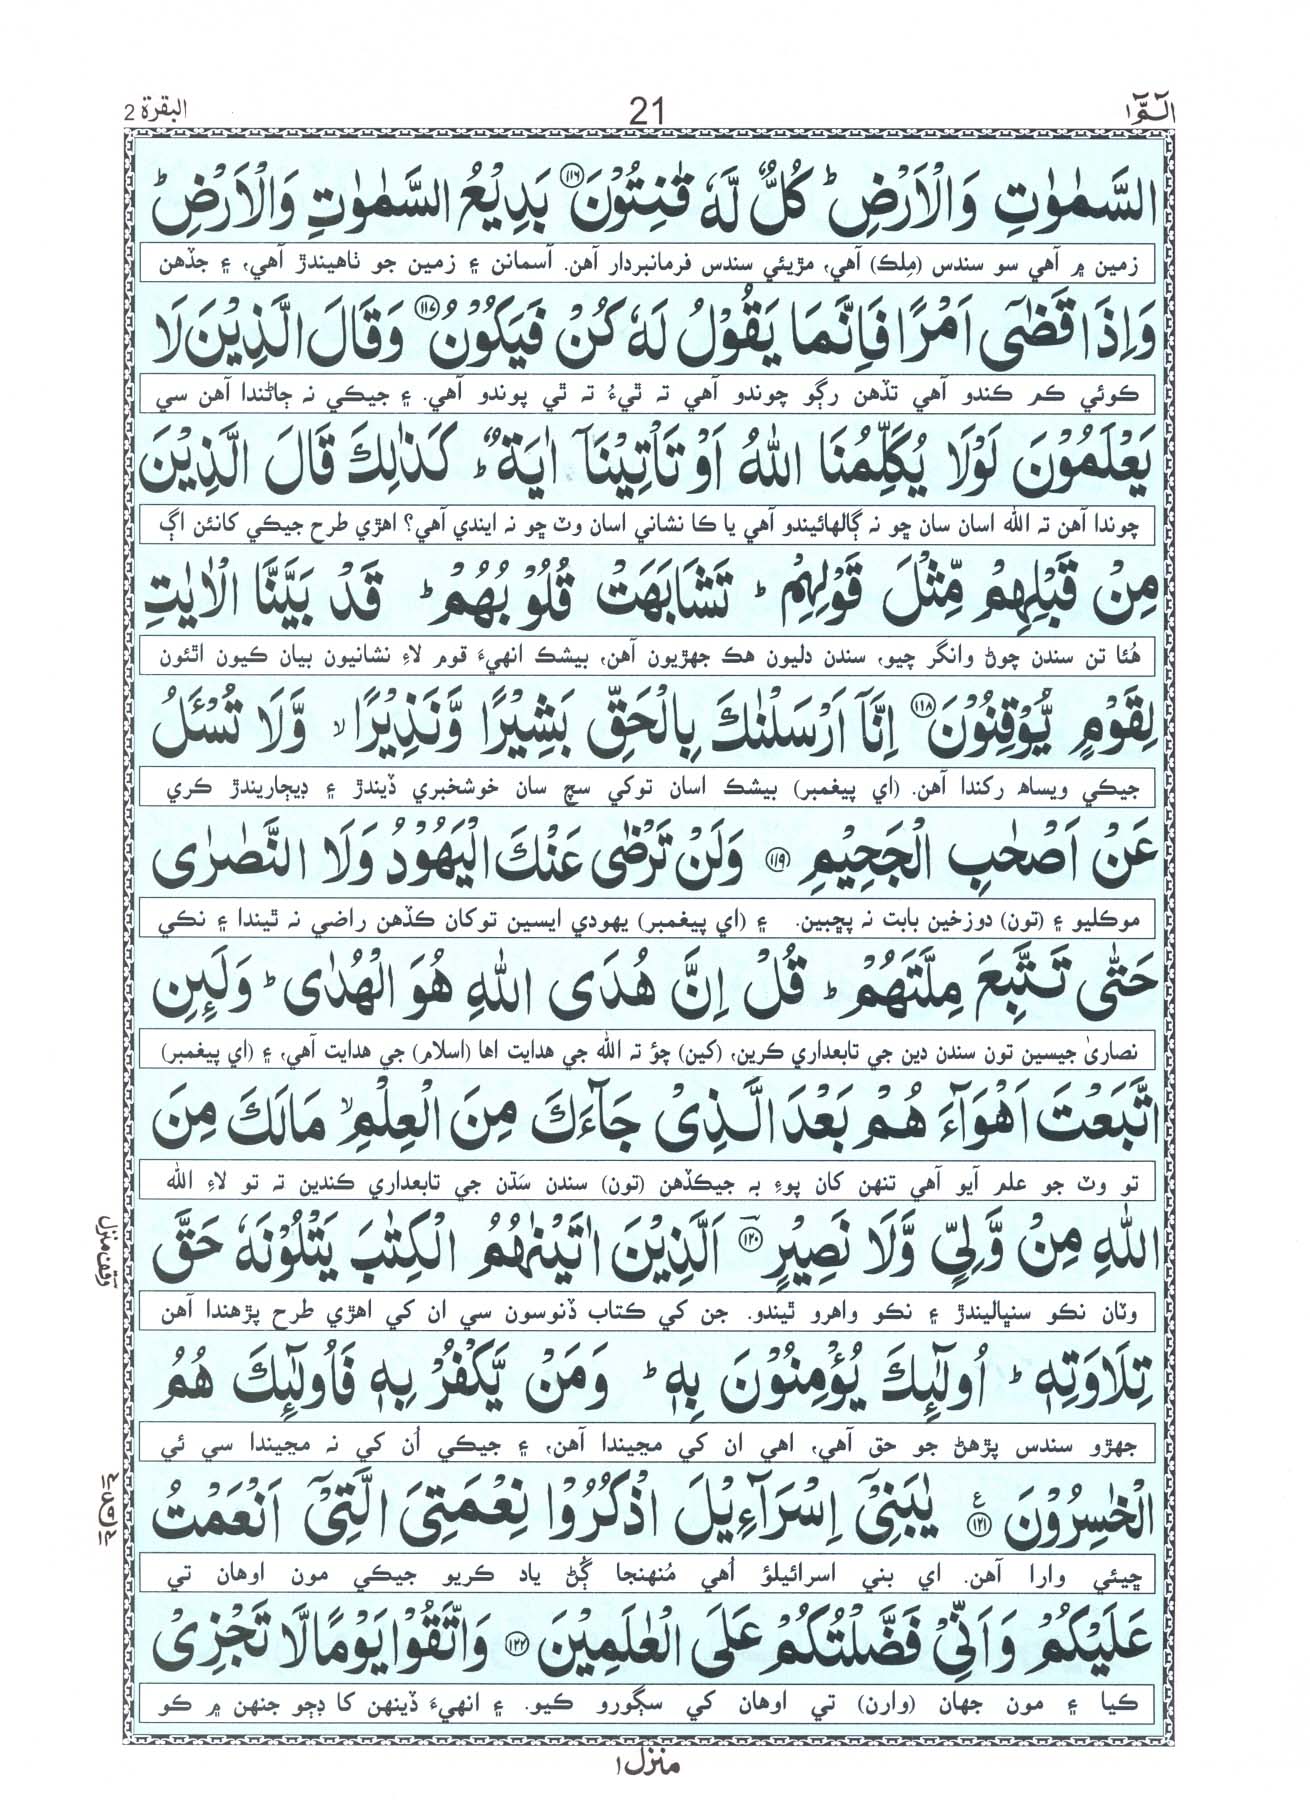 الٓمّٓ ١
21
البقرة 2
السَّمٰوٰتِ وَالْاَرْضِ ؕ كُلٌّ لَّهٗ قٰنِتُوْنَ ﴿١١٦﴾ بَدِيْعُ السَّمٰوٰتِ وَالْاَرْضِ ؕ
زمين ۾ آهي سو سندس (مِلڪ) آهي، مڙيئي سندس فرمانبردار آهن. آسمانن ۽ زمين جو ٺاهيندڙ آهي، ۽ جڏهن
وَاِذَا قَضٰٓى اَمْرًا فَاِنَّمَا يَقُوْلُ لَهٗ كُنْ فَيَكُوْنُ ﴿١١٧﴾ وَقَالَ الَّذِيْنَ لَا
ڪوئي ڪم ڪندو آهي تڏهن رڳو چوندو آهي ته ٿيءُ ته ٿي پوندو آهي. ۽ جيڪي نہ ڄاڻندا آهن سي
يَعْلَمُوْنَ لَوْلَا يُكَلِّمُنَا اللّٰهُ اَوْ تَاْتِيْنَآ اٰيَةٌ ؕ كَذٰلِكَ قَالَ الَّذِيْنَ
چوندا آهن تہ الله اسان سان ڇو نہ ڳالهائيندو آهي يا ڪا نشاني اسان وٽ ڇو نہ ايندي آهي؟ اهڙي طرح جيڪي کانئن اڳ
مِنْ قَبْلِهِمْ مِّثْلَ قَوْلِهِمْ ؕ تَشَابَهَتْ قُلُوْبُهُمْ ؕ قَدْ بَيَّنَّا الْاٰيٰتِ
هُئا تن سندن چوڻ وانگر چيو، سندن دليون هڪ جهڙيون آهن، بيشڪ انهيءَ قوم لاءِ نشانيون بيان ڪيون اٿئون
لِقَوْمٍ يُّوْقِنُوْنَ ﴿١١٨﴾ اِنَّآ اَرْسَلْنٰكَ بِالْحَقِّ بَشِيْرًا وَّنَذِيْرًا ۙ وَّلَا تُسْـَٔلُ
جيڪي ويساهہ رکندا آهن. (اي پيغمبر) بيشڪ اسان توکي سچ سان خوشخبري ڏيندڙ ۽ ڊيڄاريندڙ ڪري
عَنْ اَصْحٰبِ الْجَحِيْمِ ﴿١١٩﴾ وَلَنْ تَرْضٰى عَنْكَ الْيَهُوْدُ وَلَا النَّصٰرٰى
موڪليو ۽ (تون) دوزخين بابت نہ پڇبين. ۽ (اي پيغمبر) يهودي ايسين توکان ڪڏهن راضي نہ ٿيندا ۽ نڪي
حَتّٰى تَتَّبِعَ مِلَّتَهُمْ ؕ قُلْ اِنَّ هُدَى اللّٰهِ هُوَ الْهُدٰى ؕ وَلَىِٕنِ
نصاريٰ جيسين تون سندن دين جي تابعداري ڪرين، (کين) چؤ تہ الله جي هدايت اها (اسلام) جي هدايت آهي، ۽ (اي پيغمبر)
اتَّبَعْتَ اَهْوَآءَ هُمْ بَعْدَ الَّذِيْ جَآءَكَ مِنَ الْعِلْمِ ۙ مَالَكَ مِنَ
تو وٽ جو علم آيو آهي تنهن کان پوءِ بہ جيڪڏهن (تون) سندن سَڌن جي تابعداري ڪندين تہ تو لاءِ الله
اللّٰهِ مِنْ وَّلِيٍّ وَّلَا نَصِيْرٍ ﴿١٢٠﴾ اَلَّذِيْنَ اٰتَيْنٰهُمُ الْكِتٰبَ يَتْلُوْنَهٗ حَقَّ
وٽان نڪو سنڀاليندڙ ۽ نڪو واهرو ٿيندو. جن کي ڪتاب ڏنوسون سي ان کي اهڙي طرح پڙهندا آهن
تِلَاوَتِهٖ ؕ اُولٰٓىِٕكَ يُؤْمِنُوْنَ بِهٖ ؕ وَمَنْ يَّكْفُرْ بِهٖ فَاُولٰٓىِٕكَ هُمُ
جهڙو سندس پڙهڻ جو حق آهي، اهي ان کي مڃيندا آهن، ۽ جيڪي اُن کي نہ مڃيندا سي ئي
الْخٰسِرُوْنَ ﴿١٢١﴾ ع يٰبَنِيْٓ اِسْرَآءِيْلَ اذْكُرُوْا نِعْمَتِيَ الَّتِيْٓ اَنْعَمْتُ
ڇيئي وارا آهن. اي بني اسرائيلؤ اُهي مُنهنجا ڳُڻ ياد ڪريو جيڪي مون اوهان تي
عَلَيْكُمْ وَاَنِّيْ فَضَّلْتُكُمْ عَلَى الْعٰلَمِيْنَ ﴿١٢٢﴾ وَاتَّقُوْا يَوْمًا لَّا تَجْزِيْ
ڪيا ۽ مون جهان (وارن) تي اوهان کي سڳورو ڪيو. ۽ انهيءَ ڏينهن کا ڊڄو جنهن ۾ ڪو
وقف منزل
منزل ١